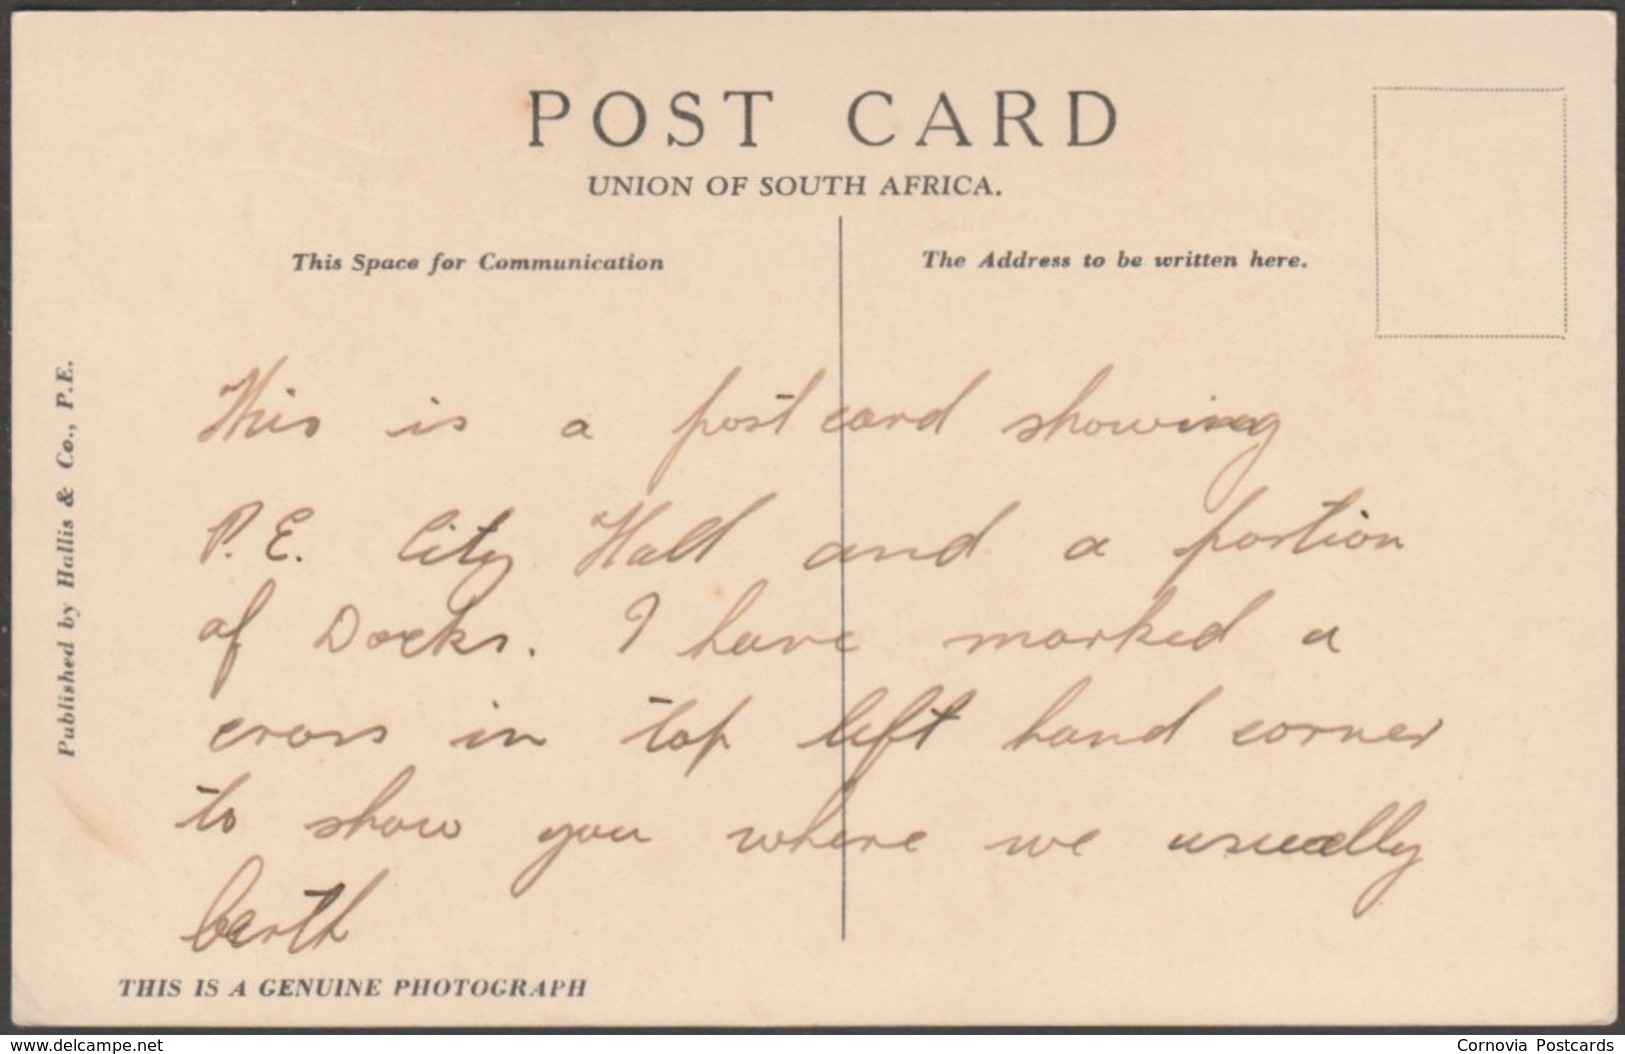 POST CARD
UNION OF SOUTH AFRICA.
This Space for Communication
The Address to be written here.
Published by Hallis & Co., P.E.
This is a post card showing
P.E. City Hall and a portion
of Docks. I have marked a
cross in top left hand corner
to show you where we usually
berth
THIS IS A GENUINE PHOTOGRAPH
www.delcampe.net
Cornovia Postcards